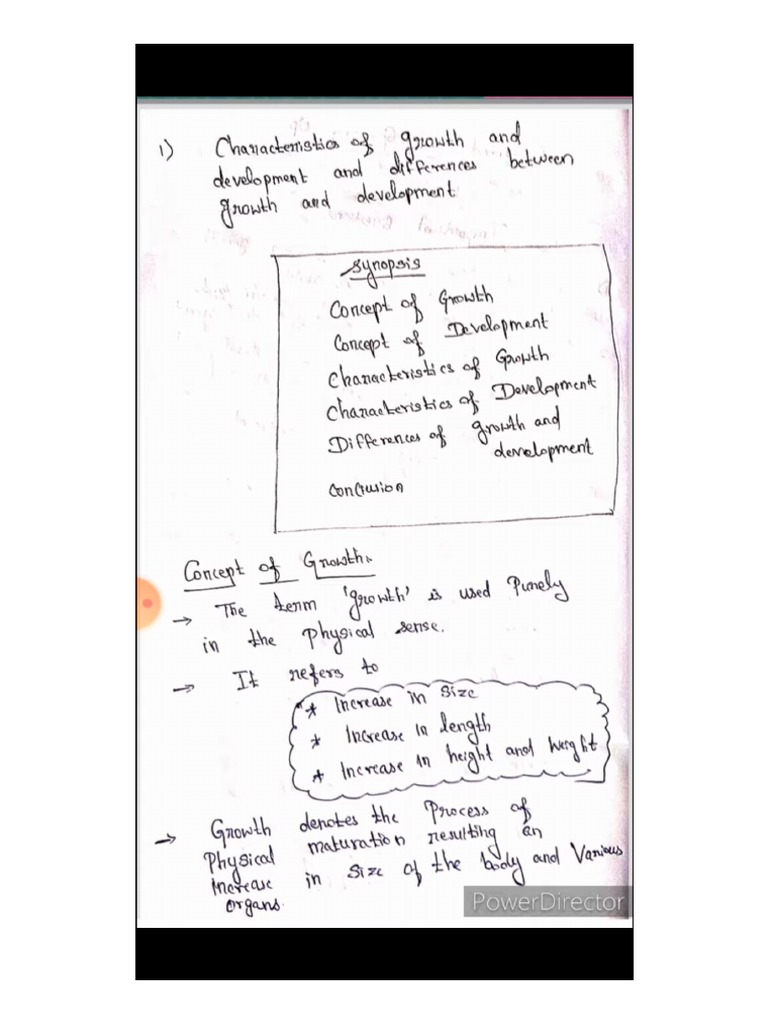 1) Characteristics of growth and
development and differences between
growth and development
Synopsis
Concept of Growth
Concept of Development
Characteristics of Growth
Characteristics of Development
Differences of growth and
development
Conclusion
Concept of Growth:
→ The term 'growth' is used Purely
in the Physical sense.
→ It refers to
* Increase in Size
* Increase in length
* Increase in height and weight
→ Growth denotes the Process of
Physical maturation resulting an
increase in size of the body and Various
organs.
PowerDirector